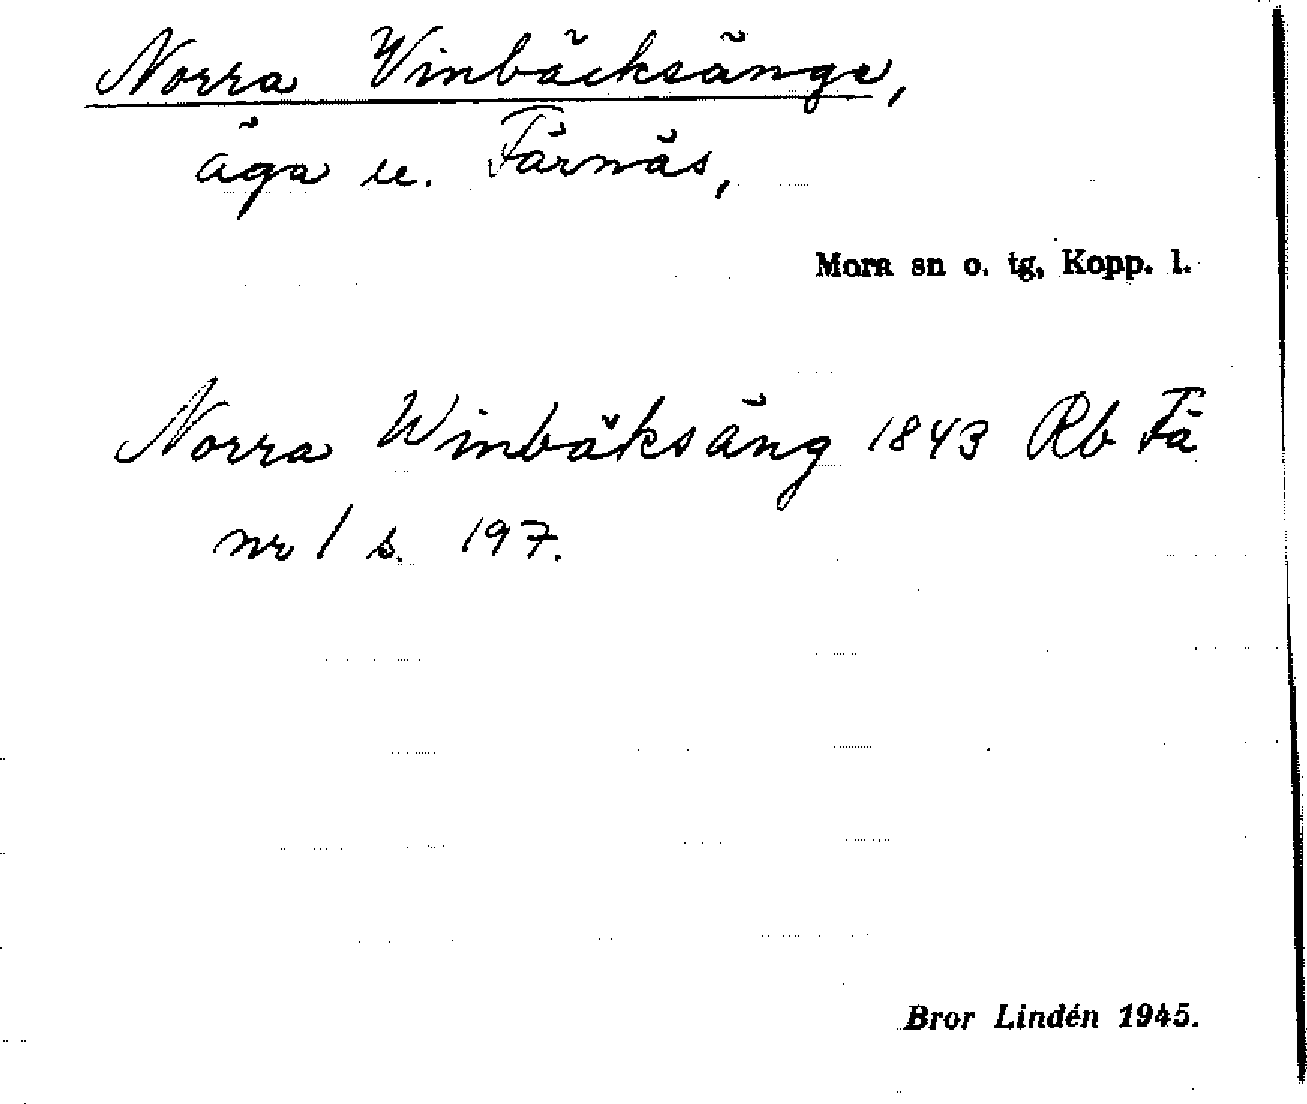 Norra Vinbäcksänge,
äga u. Färnäs,
Mora sn o. tg, Kopp. l.
Norra Winbäksäng 1843 Rb Fä
nr 1 s. 197.
Bror Lindén 1945.